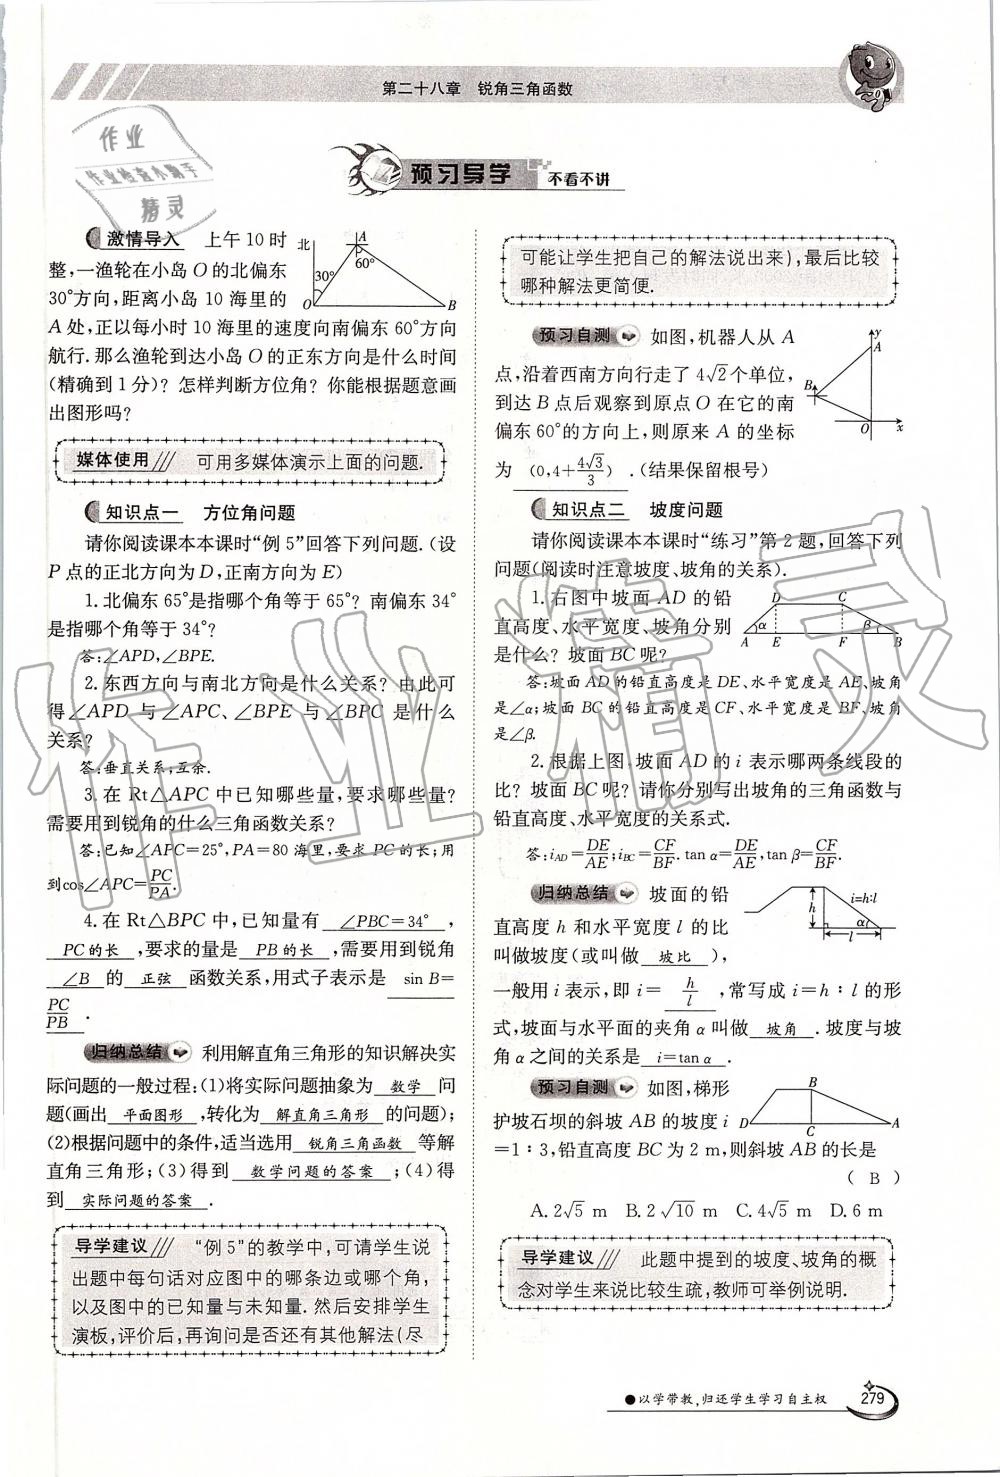 第二十八章　锐角三角函数
作业
作业检查小助手
精灵
预习导学 不看不讲
激情导入　上午 10 时
整,一渔轮在小岛 O 的北偏东
30°方向,距离小岛 10 海里的
A 处,正以每小时 10 海里的速度向南偏东 60°方向
航行.那么渔轮到达小岛 O 的正东方向是什么时间
(精确到 1 分)?怎样判断方位角?你能根据题意画
出图形吗?
北 A 60° 30° O B
媒体使用　可用多媒体演示上面的问题.
知识点一　方位角问题
请你阅读课本本课时“例 5”回答下列问题.(设
P 点的正北方向为 D,正南方向为 E)
1.北偏东 65°是指哪个角等于 65°?南偏东 34°
是指哪个角等于 34°?
答:∠APD,∠BPE.
2.东西方向与南北方向是什么关系?由此可
得∠APD 与∠APC、∠BPE 与∠BPC 是什么
关系?
答:垂直关系,互余.
3.在 Rt△APC 中已知哪些量,要求哪些量?
需要用到锐角的什么三角函数关系?
答:已知∠APC=25°,PA=80 海里,要求 PC 的长;用
到cos∠APC=PC/PA.
4.在 Rt△BPC 中,已知量有 ∠PBC=34°,
PC 的长,要求的量是 PB 的长,需要用到锐角
∠B 的 正弦 函数关系,用式子表示是 sin B=
PC/PB.
归纳总结　利用解直角三角形的知识解决实
际问题的一般过程:(1)将实际问题抽象为 数学 问
题(画出 平面图形,转化为 解直角三角形 的问题);
(2)根据问题中的条件,适当选用 锐角三角函数 等解
直角三角形;(3)得到 数学问题的答案;(4)得
到 实际问题的答案.
导学建议　“例 5”的教学中,可请学生说
出题中每句话对应图中的哪条边或哪个角,
以及图中的已知量与未知量.然后安排学生
演板,评价后,再询问是否还有其他解法(尽
可能让学生把自己的解法说出来),最后比较
哪种解法更简便.
预习自测　如图,机器人从 A
点,沿着西南方向行走了 4√2个单位,
到达 B 点后观察到原点 O 在它的南
偏东 60°的方向上,则原来 A 的坐标
为 (0,4+4√3/3).(结果保留根号)
y A B O x
知识点二　坡度问题
请你阅读课本本课时“练习”第 2 题,回答下列
问题(阅读时注意坡度、坡角的关系).
1.右图中坡面 AD 的铅
直高度、水平宽度、坡角分别
是什么?坡面 BC 呢?
D C α β A E F B
答:坡面 AD 的铅直高度是 DE、水平宽度是 AE、坡角
是∠α;坡面 BC 的铅直高度是 CF、水平宽度是 BF、坡角
是∠β.
2.根据上图.坡面 AD 的 i 表示哪两条线段的
比?坡面 BC 呢?请你分别写出坡角的三角函数与
铅直高度、水平宽度的关系式.
答:iAD=DE/AE;iBC=CF/BF.tan α=DE/AE,tan β=CF/BF.
归纳总结　坡面的铅
直高度 h 和水平宽度 l 的比
叫做坡度(或叫做 坡比),
一般用 i 表示,即 i= h/l,常写成 i=h∶l 的形
式,坡面与水平面的夹角 α 叫做 坡角.坡度与坡
角 α 之间的关系是 i=tan α.
i=h:l h α l l
预习自测　如图,梯形
护坡石坝的斜坡 AB 的坡度 i
=1∶3,铅直高度 BC 为 2 m,则斜坡 AB 的长是
( B )
B D C A
A.2√5 m　B.2√10 m　C.4√5 m　D.6 m
导学建议　此题中提到的坡度、坡角的概
念对学生来说比较生疏,教师可举例说明.
●以学带教,归还学生学习自主权
279
作业精灵